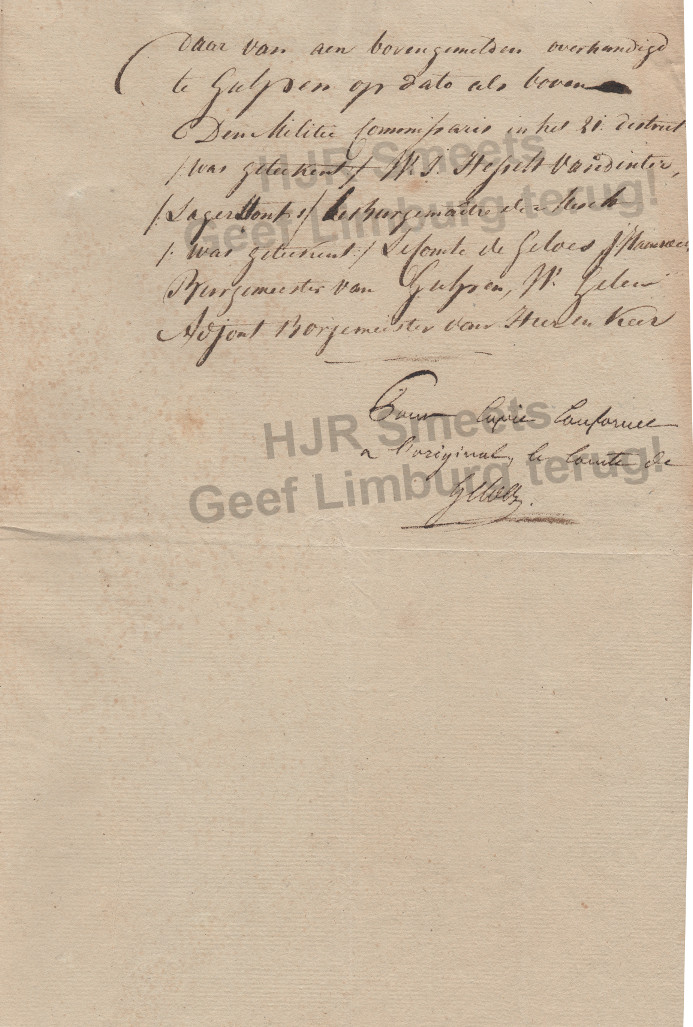 daar van aen bovengemelden overhandigd
te Gulpen op dato als boven
Den Militie Commissaris in het 21 district
/was geteekent/ W. J. Hesselt van dinter,
/: Lager
/: was geteekent :/ Le Comte de Geloes
Burgemeester van Gulpen, W. Gelein
Adjont Borgemeister van Heer en Keer
Pour Copie Conforme
a l'original, le Comte de
Geloes.
HJR Smeets
Geef Limburg terug!
HJR Smeets
Geef Limburg terug!